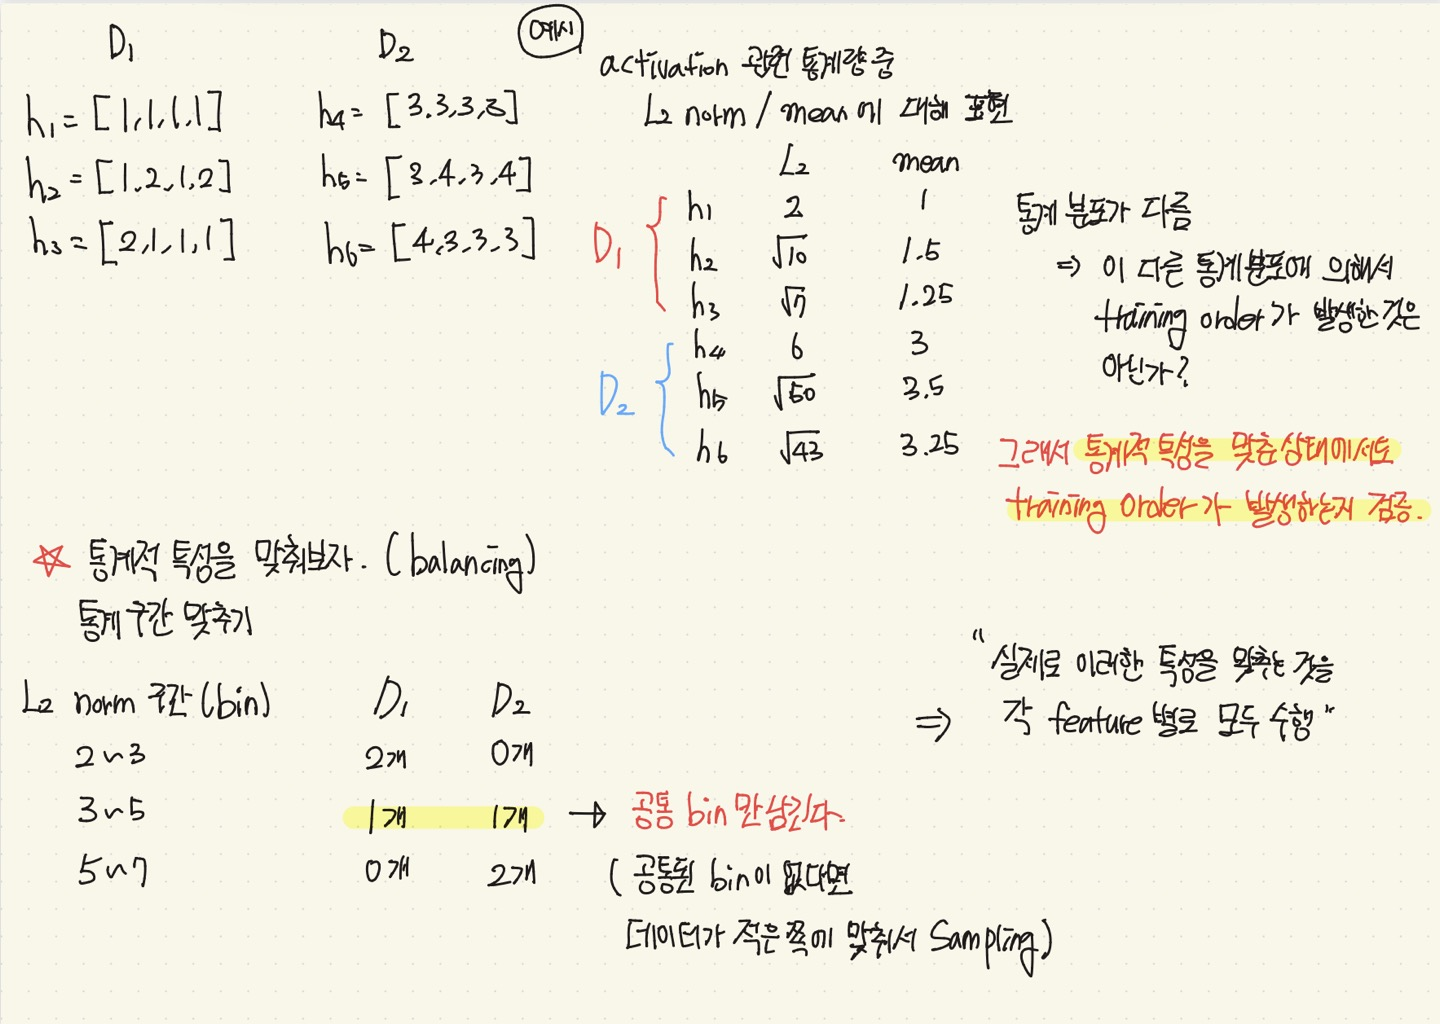 D₁
h₁ = [1,1,1,1]
h₂ = [1,2,1,2]
h₃ = [2,1,1,1]
D₂
h₄ = [3.3,3,3]
h₅ = [3,4,3,4]
h₆ = [4,3,3,3]
예시
activation 관련 통계량 중
L₂ norm / mean 에 대해 표현
L₂ mean
D₁
h₁ 2 1
h₂ √10 1.5
h₃ √7 1.25
D₂
h₄ 6 3
h₅ √50 3.5
h₆ √43 3.25
통계 분포가 다름
⇒ 이 다른 통계분포에 의해서
training order가 발생한 것은
아닌가?
그래서 통계적 특성을 맞춘상태에서도
training order가 발생하는지 검증.
☆ 통계적 특성을 맞춰보자. (balancing)
통계 구간 맞추기
L₂ norm 구간 (bin) D₁ D₂
2~3 2개 0개
3~5 1개 1개 → 공통 bin 만 남긴다.
5~7 0개 2개
( 공통된 bin이 없다면
데이터가 적은쪽에 맞춰서 Sampling)
⇒ "실제로 이러한 특성을 맞추는 것을
각 feature 별로 모두 수행"